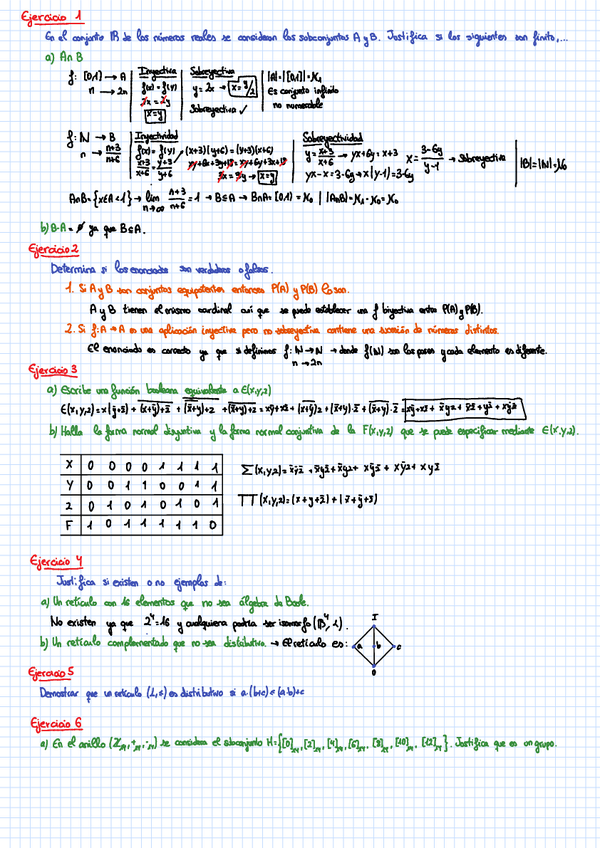 Ejercicio 1
En el conjunto ℝ de los números reales se consideran los subconjuntos A y B. Justifica si los siguientes son finito,...
a) A∩B
f: [0,1] → A
n → 2n
Inyectiva
f(x) = f(y)
2x = 2y
x = y
Sobreyectiva
y = 2x → x = y/2
Sobreyectiva ✓
|A| = |[0,1]| = ℵ₁
Es conjunto infinito
no numerable
f: ℕ → B
n → n+3/n+6
Inyectividad
f(x) = f(y)
x+3/x+6 = y+3/y+6
(x+3)(y+6) = (y+3)(x+6)
xy+6x+3y+18 = xy+6y+3x+18
3x = 3y → x = y
Sobreyectividad
y = x+3/x+6 → yx+6y = x+3
yx-x = 3-6y → x(y-1) = 3-6y
x = 3-6y/y-1 → Sobreyectiva
|B| = |ℕ| = ℵ₀
A∩B = {x∈A<1} → lim n→∞ n+3/n+6 = 1 → B⊆A → B∩A = [0,1) = ℵ₀ | |A∩B| = ℵ₀·ℵ₀ = ℵ₀
b) B-A = ∅ ya que B⊆A.
Ejercicio 2
Determina si los enunciados son verdaderos o falsos.
1. Si A y B son conjuntos equipotentes entonces P(A) y P(B) lo son.
A y B tienen el mismo cardinal así que se puede establecer una f biyectiva entre P(A) y P(B).
2. Si f: A → A es una aplicación inyectiva pero no sobreyectiva contiene una sucesión de números distintos.
El enunciado es correcto ya que si definimos f: ℕ → ℕ → donde f(ℕ) son los pares y cada elemento es diferente.
n → 2n
Ejercicio 3
a) Escribe una función booleana equivalente a E(x,y,z)
b) Halla la forma normal disyuntiva y la forma normal conjuntiva de la F(x,y,z) que se puede especificar mediante E(x,y,z).
X 0 0 0 0 1 1 1 1
Y 0 0 1 1 0 0 1 1
Z 0 1 0 1 0 1 0 1
F 1 0 1 1 1 1 1 0
Ejercicio 4
Justifica si existen o no ejemplos de:
a) Un retículo con 16 elementos que no sea álgebra de Boole.
No existen ya que 2⁴=16 y cualquiera podría ser isomorfo (B⁴, ≤).
b) Un retículo complementado que no sea distributiva. → El retículo es:
I
a
b
c
0
Ejercicio 5
Demostrar que un retículo (L,≤) es distributivo si a·(b+c) ≤ (a·b)+c
Ejercicio 6